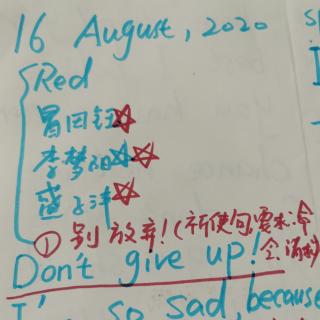 16 August, 2020
Red
冒田钰☆
李梦阳☆☆
盛子沣☆
① 别放弃!(祈使句,要求,命令
Don't give up!
I'm so sad, because